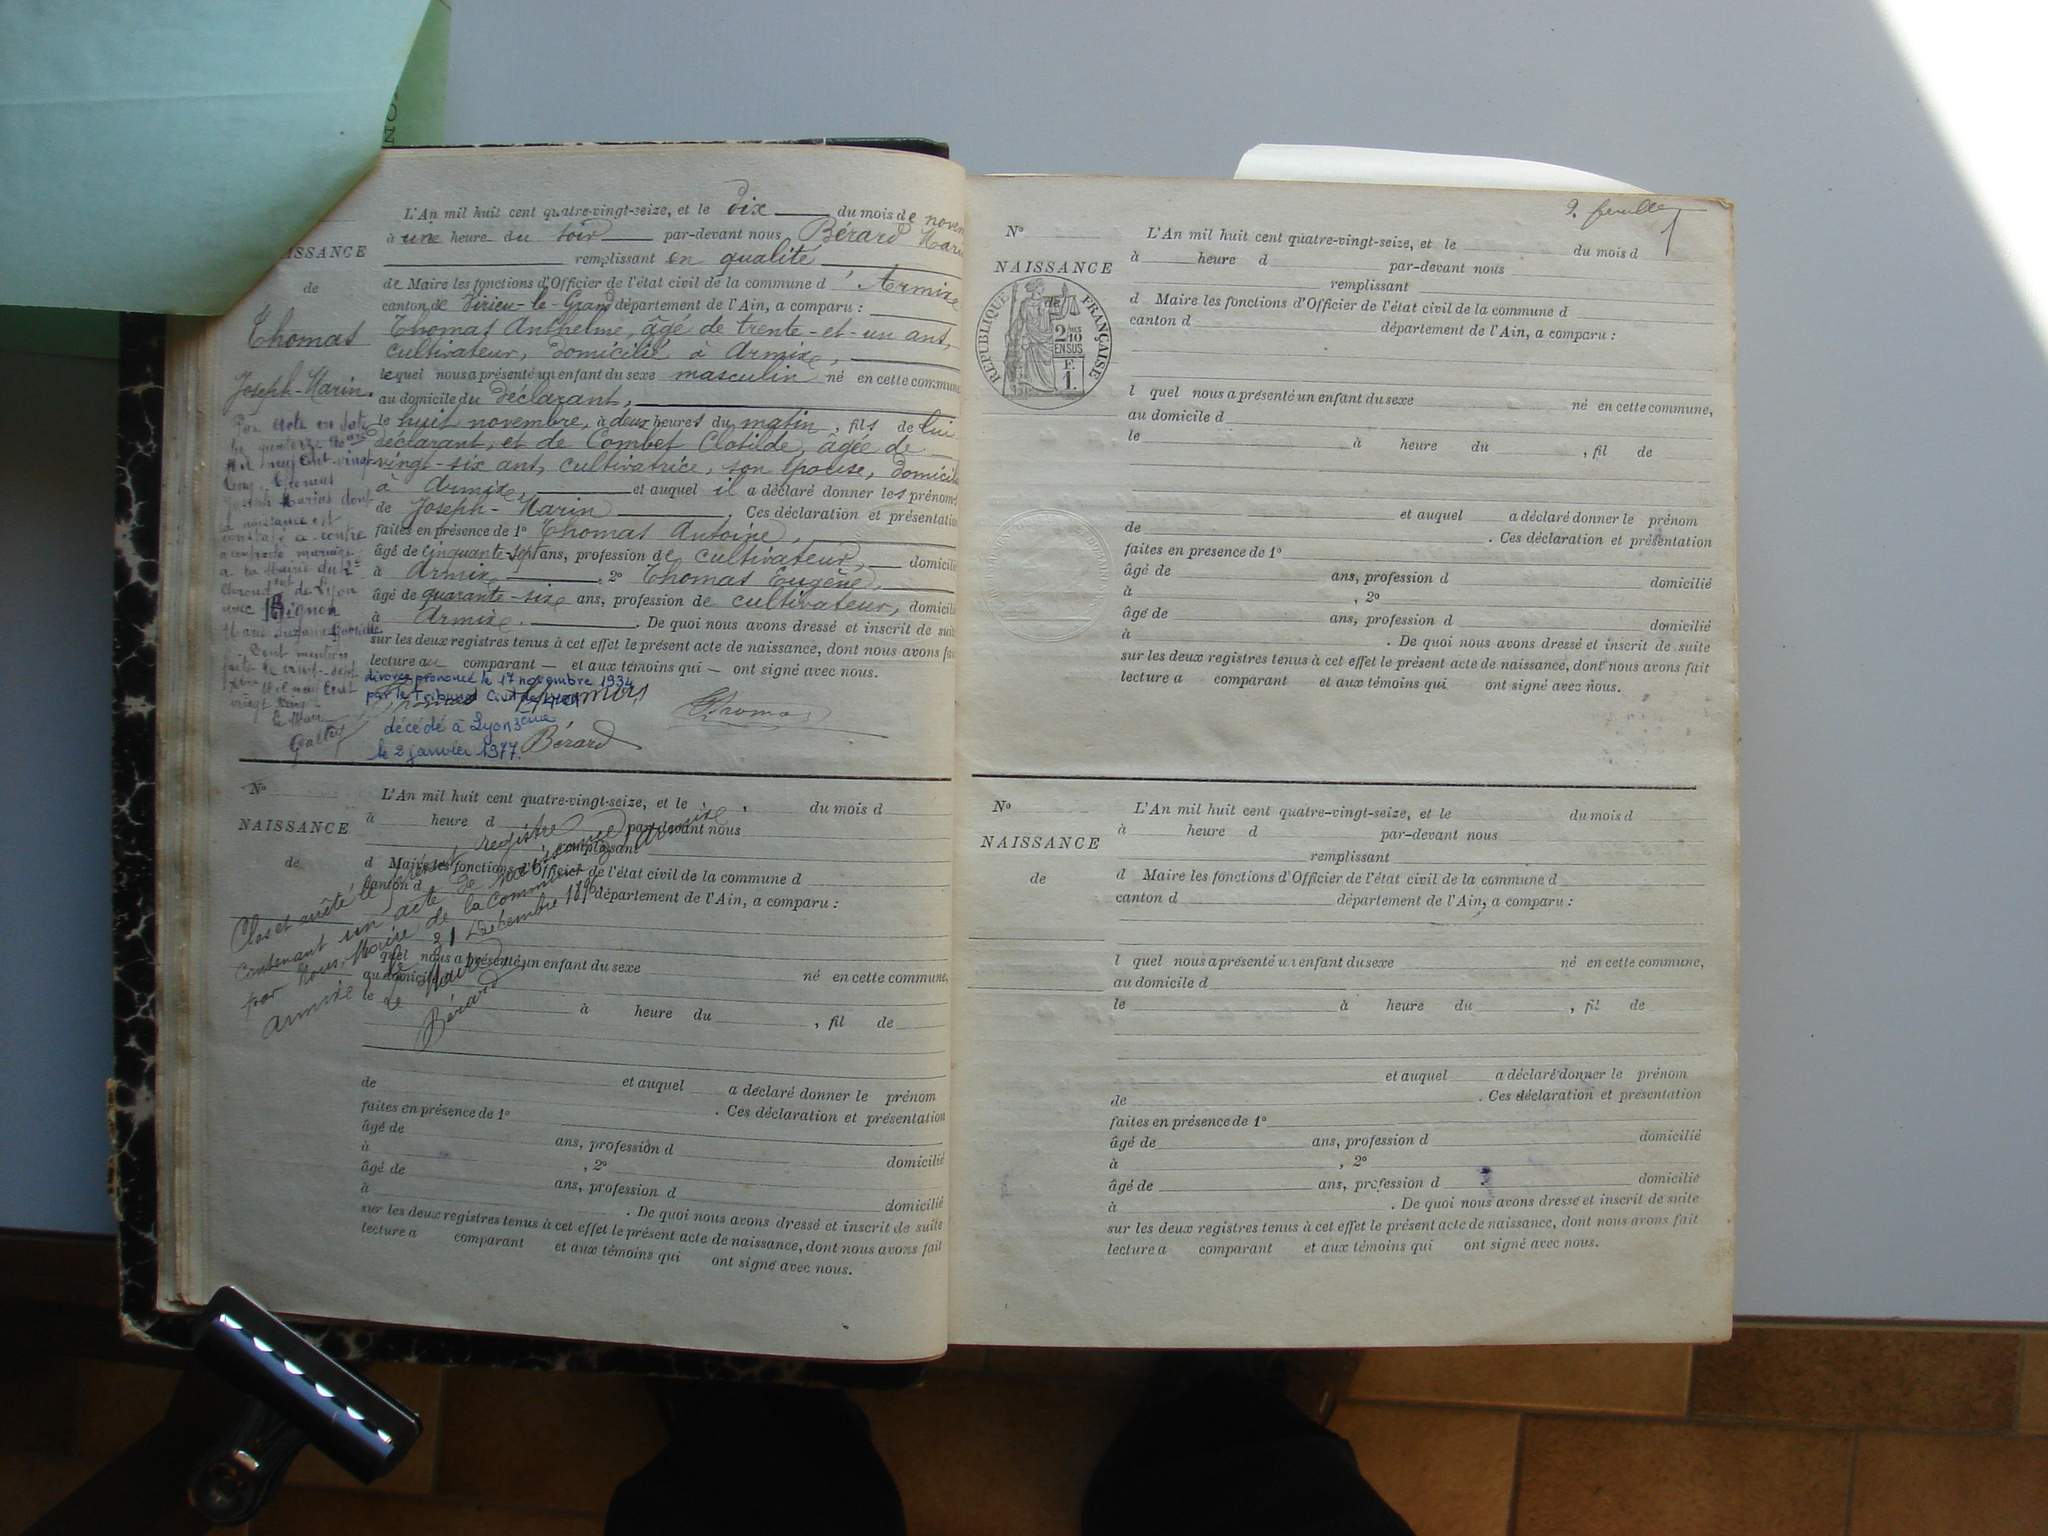 L'An mil huit cent quatre-vingt-seize, et le dix du mois de novem
à une heure du soir par-devant nous Bérard Mari
remplissant en qualité
de Maire les fonctions d'Officier de l'état civil de la commune d'Armix
canton de Virieu-le-Grand département de l'Ain, a comparu :
Thomas Anthelme, âgé de trente-et-un ans,
cultivateur, domicilié à Armix,
lequel nous a présenté un enfant du sexe masculin né en cette commune
au domicile du déclarant,
le huit novembre, à deux heures du matin, fils de lui
déclarant, et de Combet Clotilde, âgée de
vingt-six ans, cultivatrice, son épouse, domicili
à Armix, et auquel il a déclaré donner les prénoms
de Joseph-Marin. Ces déclaration et présentation
faites en présence de 1° Thomas Antoine,
âgé de cinquante-sept ans, profession de cultivateur, domicilié
à Armix, 2° Thomas Eugène,
âgé de quarante-six ans, profession de cultivateur, domicilié
à Armix. De quoi nous avons dressé et inscrit de suite
sur les deux registres tenus à cet effet le présent acte de naissance, dont nous avons fait
lecture au comparant — et aux témoins qui — ont signé avec nous.
divorce prononcé le 17 novembre 1934
par le Tribunal Civil de Lyon
Thomas
Thomas
décédé à Lyon 3ème
le 2 janvier 1977.
Bérard
ISSANCE
de
Thomas
Joseph-Marin.
Par acte en date
Mil neuf cent vingt
cinq, Thomas
Joseph Marin dont
la naissance est
constatée ci-contre
a contracté mariage
à la Mairie du 2e
Arrondt de Lyon
avec
Marie Suzanne Gabrielle
Dont mention
faite le vingt-sept
Mil neuf cent
vingt cinq
Le Maire
N°
NAISSANCE
de
L'An mil huit cent quatre-vingt-seize, et le du mois d
à heure d par-devant nous
remplissant
d Maire les fonctions d'Officier de l'état civil de la commune d
canton d département de l'Ain, a comparu :
Clos et arrêté le présent registre
contenant un acte de naissance
par Nous, Maire de la Commune d'Armix
Armix le 31 Décembre 1896
Le Maire
Bérard
l quel nous a présenté un enfant du sexe né en cette commune,
au domicile d
le à heure du , fil de
et auquel a déclaré donner le prénom
de . Ces déclaration et présentation
faites en présence de 1°
âgé de ans, profession d domicilié
à , 2°
âgé de ans, profession d domicilié
à . De quoi nous avons dressé et inscrit de suite
sur les deux registres tenus à cet effet le présent acte de naissance, dont nous avons fait
lecture a comparant et aux témoins qui ont signé avec nous.
2. feuille
N°
NAISSANCE
de
RÉPUBLIQUE FRANÇAISE
2/10
EN SUS
F.
1.
L'An mil huit cent quatre-vingt-seize, et le du mois d
à heure d par-devant nous
remplissant
d Maire les fonctions d'Officier de l'état civil de la commune d
canton d département de l'Ain, a comparu :
l quel nous a présenté un enfant du sexe né en cette commune,
au domicile d
le à heure du , fil de
et auquel a déclaré donner le prénom
de . Ces déclaration et présentation
faites en présence de 1°
âgé de ans, profession d domicilié
à , 2°
âgé de ans, profession d domicilié
à . De quoi nous avons dressé et inscrit de suite
sur les deux registres tenus à cet effet le présent acte de naissance, dont nous avons fait
lecture a comparant et aux témoins qui ont signé avec nous.
N°
NAISSANCE
de
L'An mil huit cent quatre-vingt-seize, et le du mois d
à heure d par-devant nous
remplissant
d Maire les fonctions d'Officier de l'état civil de la commune d
canton d département de l'Ain, a comparu :
l quel nous a présenté un enfant du sexe né en cette commune,
au domicile d
le à heure du , fil de
et auquel a déclaré donner le prénom
de . Ces déclaration et présentation
faites en présence de 1°
âgé de ans, profession d domicilié
à , 2°
âgé de ans, profession d domicilié
à . De quoi nous avons dressé et inscrit de suite
sur les deux registres tenus à cet effet le présent acte de naissance, dont nous avons fait
lecture a comparant et aux témoins qui ont signé avec nous.